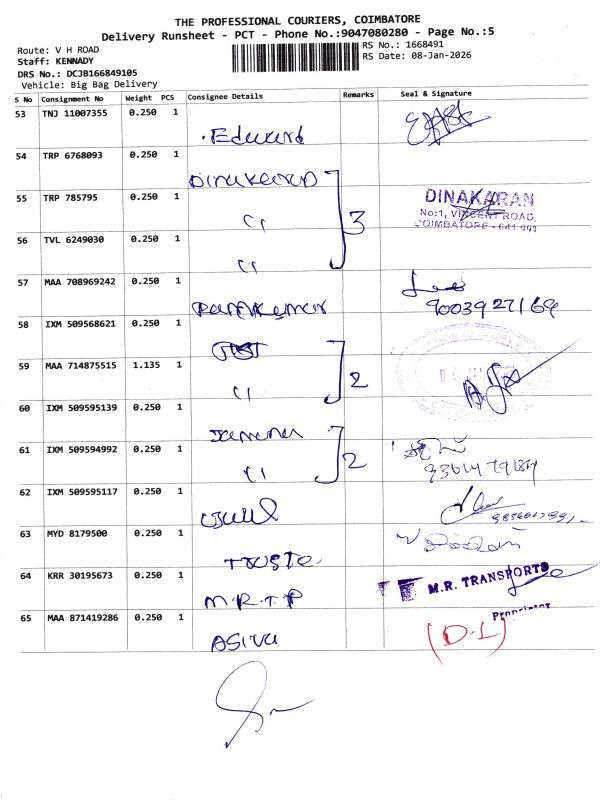 THE PROFESSIONAL COURIERS, COIMBATORE
Delivery Runsheet - PCT - Phone No.:9047080280 - Page No.:5
Route: V H ROAD
RS No.: 1668491
Staff: KENNADY
RS Date: 08-Jan-2026
DRS No.: DCJB166849105
Vehicle: Big Bag Delivery
S No Consignment No Weight PCS Consignee Details Remarks Seal & Signature
53 TNJ 11007355 0.250 1
Edward
54 TRP 6768093 0.250 1
Dinakaran
55 TRP 785795 0.250 1
3
DINAKARAN
No:1, VINCENT ROAD,
COIMBATORE - 641 001
56 TVL 6249030 0.250 1
57 MAA 708969242 0.250 1
Ramkumar
9003927169
58 IXM 509568621 0.250 1
59 MAA 714875515 1.135 1
2
60 IXM 509595139 0.250 1
61 IXM 509594992 0.250 1
2
62 IXM 509595117 0.250 1
63 MYD 8179500 0.250 1
64 KRR 30195673 0.250 1
M.R.T.P
M.R. TRANSPORTS
Proprietor
65 MAA 871419286 0.250 1
(D.L)